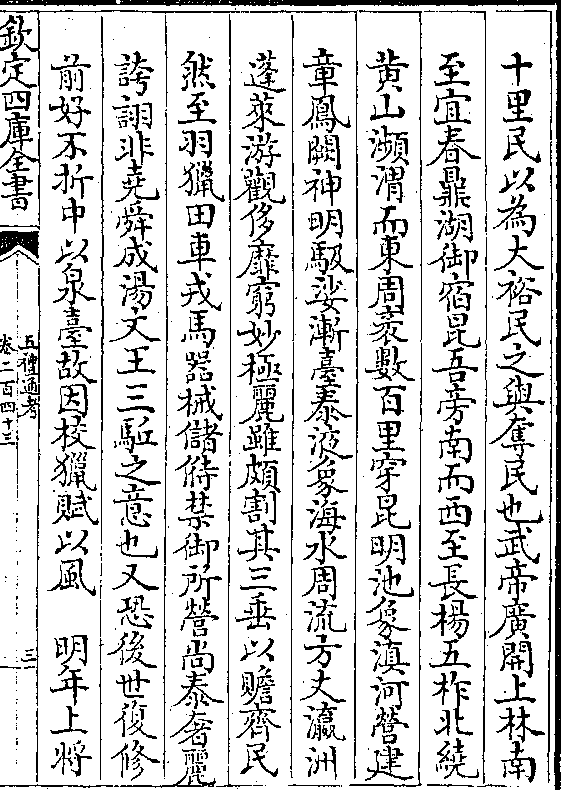 十里民以為大裕民之與奪民也武帝廣開上林南
至宜春鼎湖御宿昆吾旁南而西至長楊五柞北繞
黄山瀕渭而東周袤數百里穿昆明池象滇河營建
章鳳闕神明馺娑漸臺泰液象海水周流方丈瀛洲
蓬萊游觀侈靡窮妙極麗雖頗割其三垂以贍齊民
然至羽獵田車戎馬器械儲偫禁御所營尚泰奢麗
誇詡非堯舜成湯文王三駈之意也又恐後世復修
前好不折中以泉臺故因校獵賦以風　明年上將
欽定四庫全書
五禮通考
卷二百四十三
三